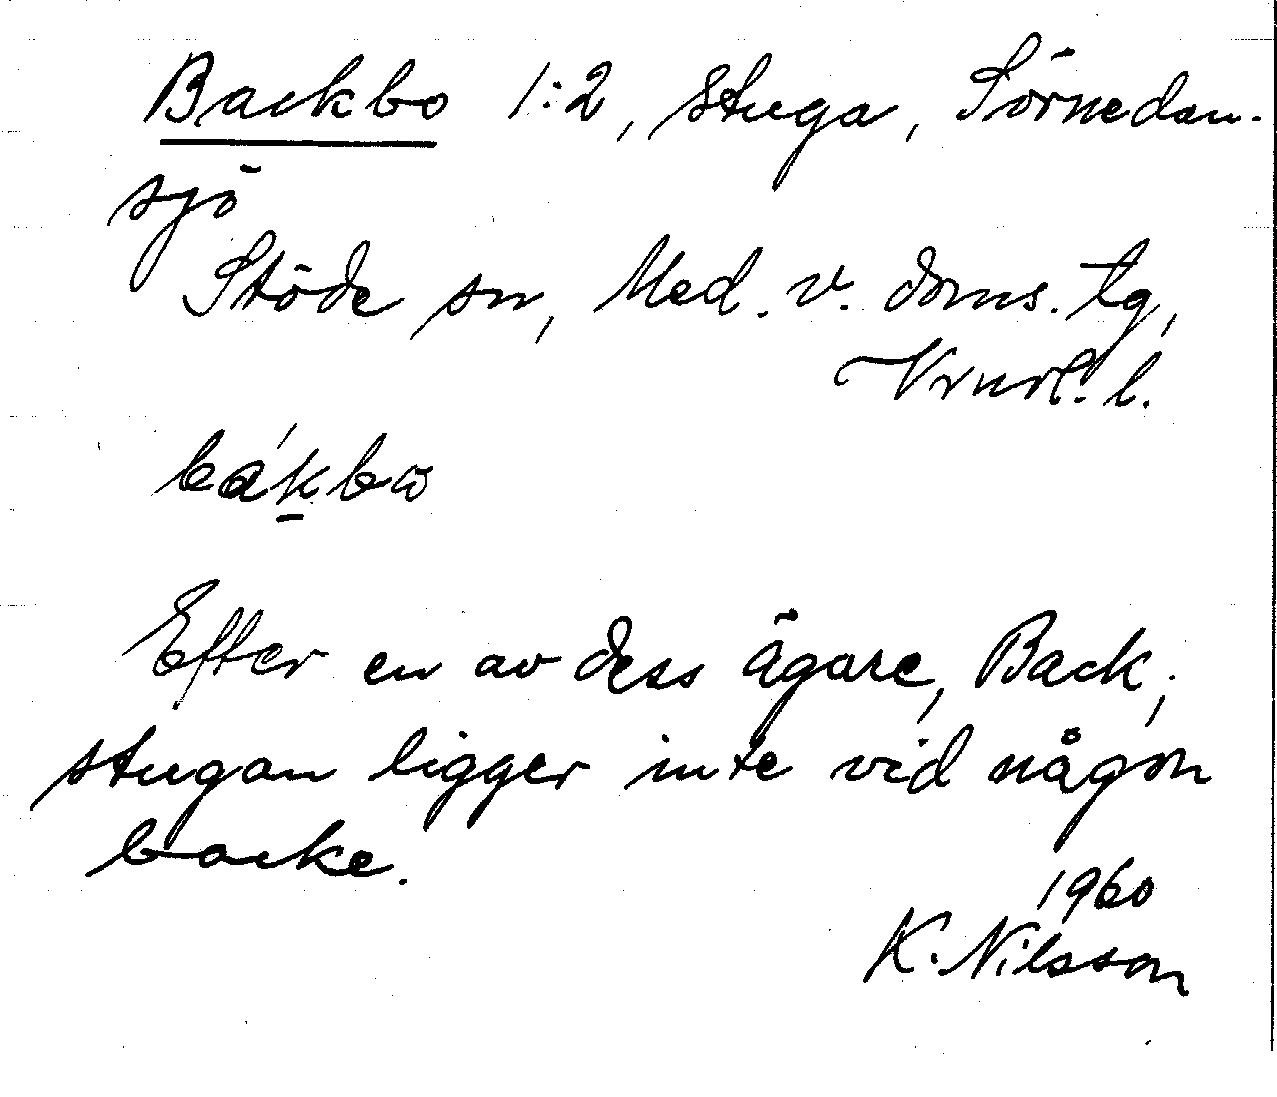 Backbo 1:2, stuga, Sörnedan-
sjö
Stöde sn, Med. v. doms. tg,
Vrnrl. l.
bák̠bω
Efter en av dess ägare, Back;
stugan ligger inte vid någon
backe.
1960
K. Nilsson